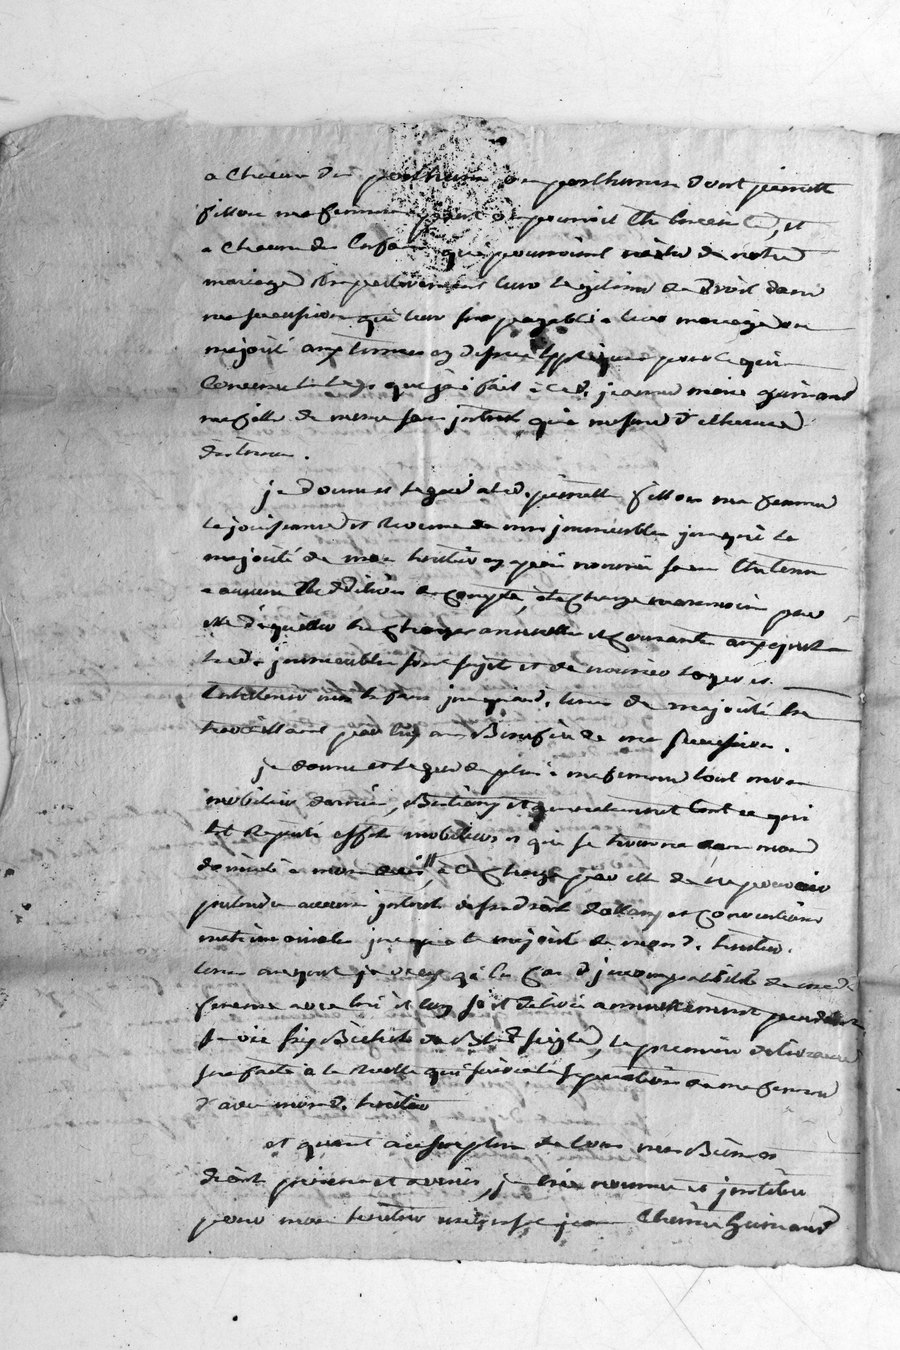 a chacun des posthumes ou posthumes dont pierrette
fillon ma femme pourroit être enceinte, et
a chacun des enfans qui pourroient naitre de notre
mariage respectivement leur legitime de droit dans
ma succession qui leur sera payable a leur mariage ou
majorité aux termes cy dessus expliqués pour ce qui
concerne le legs que j'ai fait a lad. jeanne marie guinand
ma fille de meme sans interet qu'a mesure d'echeance
des termes.
je donne et legue a lad. pierrette fillon ma femme
la jouissance et revenu de mes immeubles jusqu'à la
majorité de mon heritier cy après nommé sans être tenue
a aucune reddition de compte, a la charge neanmoins par
elle d'acquitter les charges annuelles et courantes auxquelles
lesd. immeubles sont sujets et de nourrir loger et
entretenir mes enfans jusqu'aud. tems de majorité en
travaillant par eux au Benefice de ma succession.
je donne et legue de plus a ma femme tout mon
mobilier denrées, Bestiaux et generalement tout ce qui
est reputé effet mobiliers et qui se trouvera dans mon
domicile a mon deces, a la charge par elle de ne pouvoir
pretendre aucun interet de sa dot et conventions
matrimoniales jusqu'a la majorité de mond. heritier.
tems auquel je veux qu'en cas d'incompatibilité de ma d.
femme avec lui il luy soit delivré annuellement pendant
sa vie six Bichets de Bled seigle, la premiere delivrance
sera faite a la recolte qui suivra la separation de ma femme
d'avec mond. heritier
et quant au surplus de tous mes Biens
droits presens et avenir, je crée nomme et institue
pour mon heritier universel jean Etienne Guinand